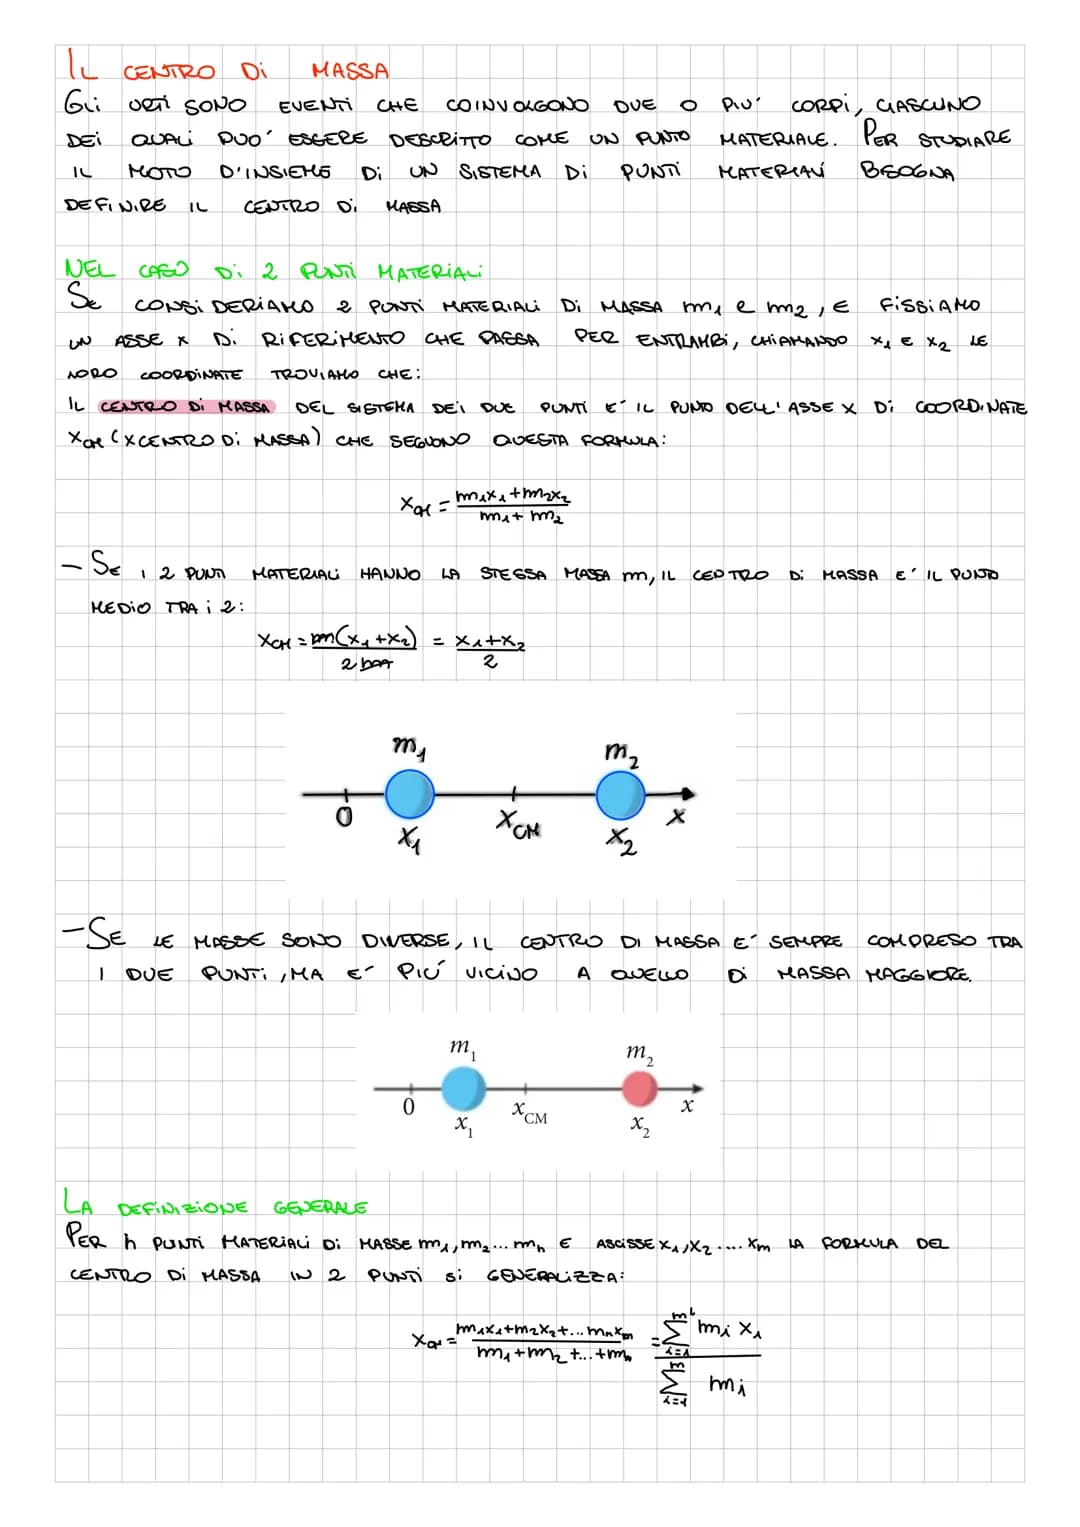 IL CENTRO Di MASSA
Gli URTi SONO EVENTi CHE COINVOLGONO DUE O PIU' CORPi, CIASCUNO
DEi QUALi PUO' ESSERE DESCRITTO COME UN PUNTO MATERIALE. PER STUDIARE
IL MOTO D'INSIEME Di UN SISTEMA Di PUNTi MATERIALi BISOGNA
DEFINIRE IL CENTRO Di MASSA
NEL CASO Di 2 PUNTi MATERIALi
SE CONSiDERIAMO 2 PUNTi MATERIALi Di MASSA m₁ e m₂, E FiSSIAMO
UN ASSE x Di RiFERiMENTO CHE PASSA PER ENTRAMBi, CHiAMANDO x₁ E x₂ LE
LORO COORDINATE TROVIAMO CHE:
IL CENTRO Di MASSA DEL SISTEMA DEi DUE PUNTi E' IL PUNTO DELL'ASSE X Di COORDINATE
XCM (X CENTRO Di MASSA) CHE SEGUONO QUESTA FORMULA:
XCM = m₁x₁+m₂x₂ / m₁+m₂
- SE I 2 PUNTi MATERIALi HANNO LA STESSA MASSA m, IL CENTRO Di MASSA E' IL PUNTO
MEDiO TRA i 2:
XCM = m(x₁+x₂) / 2m = x₁+x₂ / 2
m₁ m₂
0 X₁ XCM X₂ X
- SE LE MASSE SONO DIVERSE, IL CENTRO DI MASSA E' SEMPRE COMPRESO TRA
I DUE PUNTi, MA E' PIÚ VICINO A QUELLO Di MASSA MAGGIORE.
m₁ m₂
0 x₁ xCM x₂ x
LA DEFiNiZiONE GENERALE
PER n PUNTi MATERIALi Di MASSE m₁, m₂... mₙ E ASCISSE X₁, X₂.... Xm LA FORMULA DEL
CENTRO Di MASSA IN 2 PUNTi si GENERALIZZA:
XCM = m₁x₁+m₂x₂+...mₙxₘ / m₁+m₂+...+mₙ = ∑ i=1 mᵢ x₁ / ∑ m i=1 mᵢ